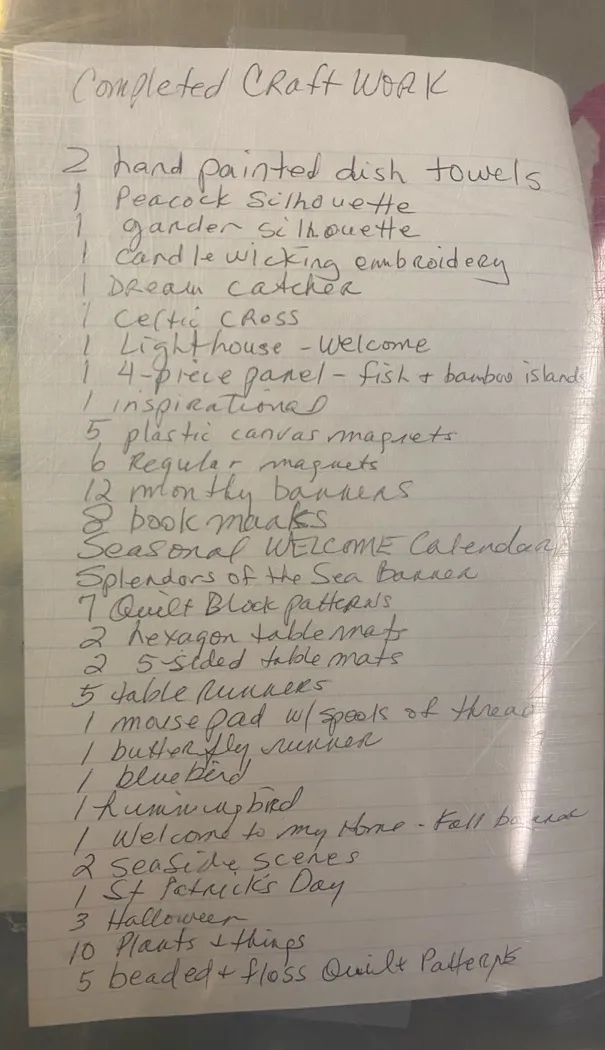 Completed Craft Work
2 hand painted dish towels
1 Peacock Silhouette
1 gander silhouette
1 Candlewicking embroidery
1 Dream Catcher
1 Celtic Cross
1 Lighthouse - Welcome
1 4-piece panel - fish + bamboo islands
1 inspirational
5 plastic canvas magnets
6 Regular magnets
12 monthly banners
8 book marks
Seasonal WELCOME Calendar
Splendors of the Sea Banner
7 Quilt Block patterns
2 hexagon table mats
2 5-sided table mats
5 table Runners
1 mouse pad w/ spools of thread
1 butterfly runner
1 bluebird
1 hummingbird
1 Welcome to my Home - Fall banner
2 Seaside scenes
1 St Patrick's Day
3 Halloween
10 Plants + things
5 beaded + floss Quilt Patterns